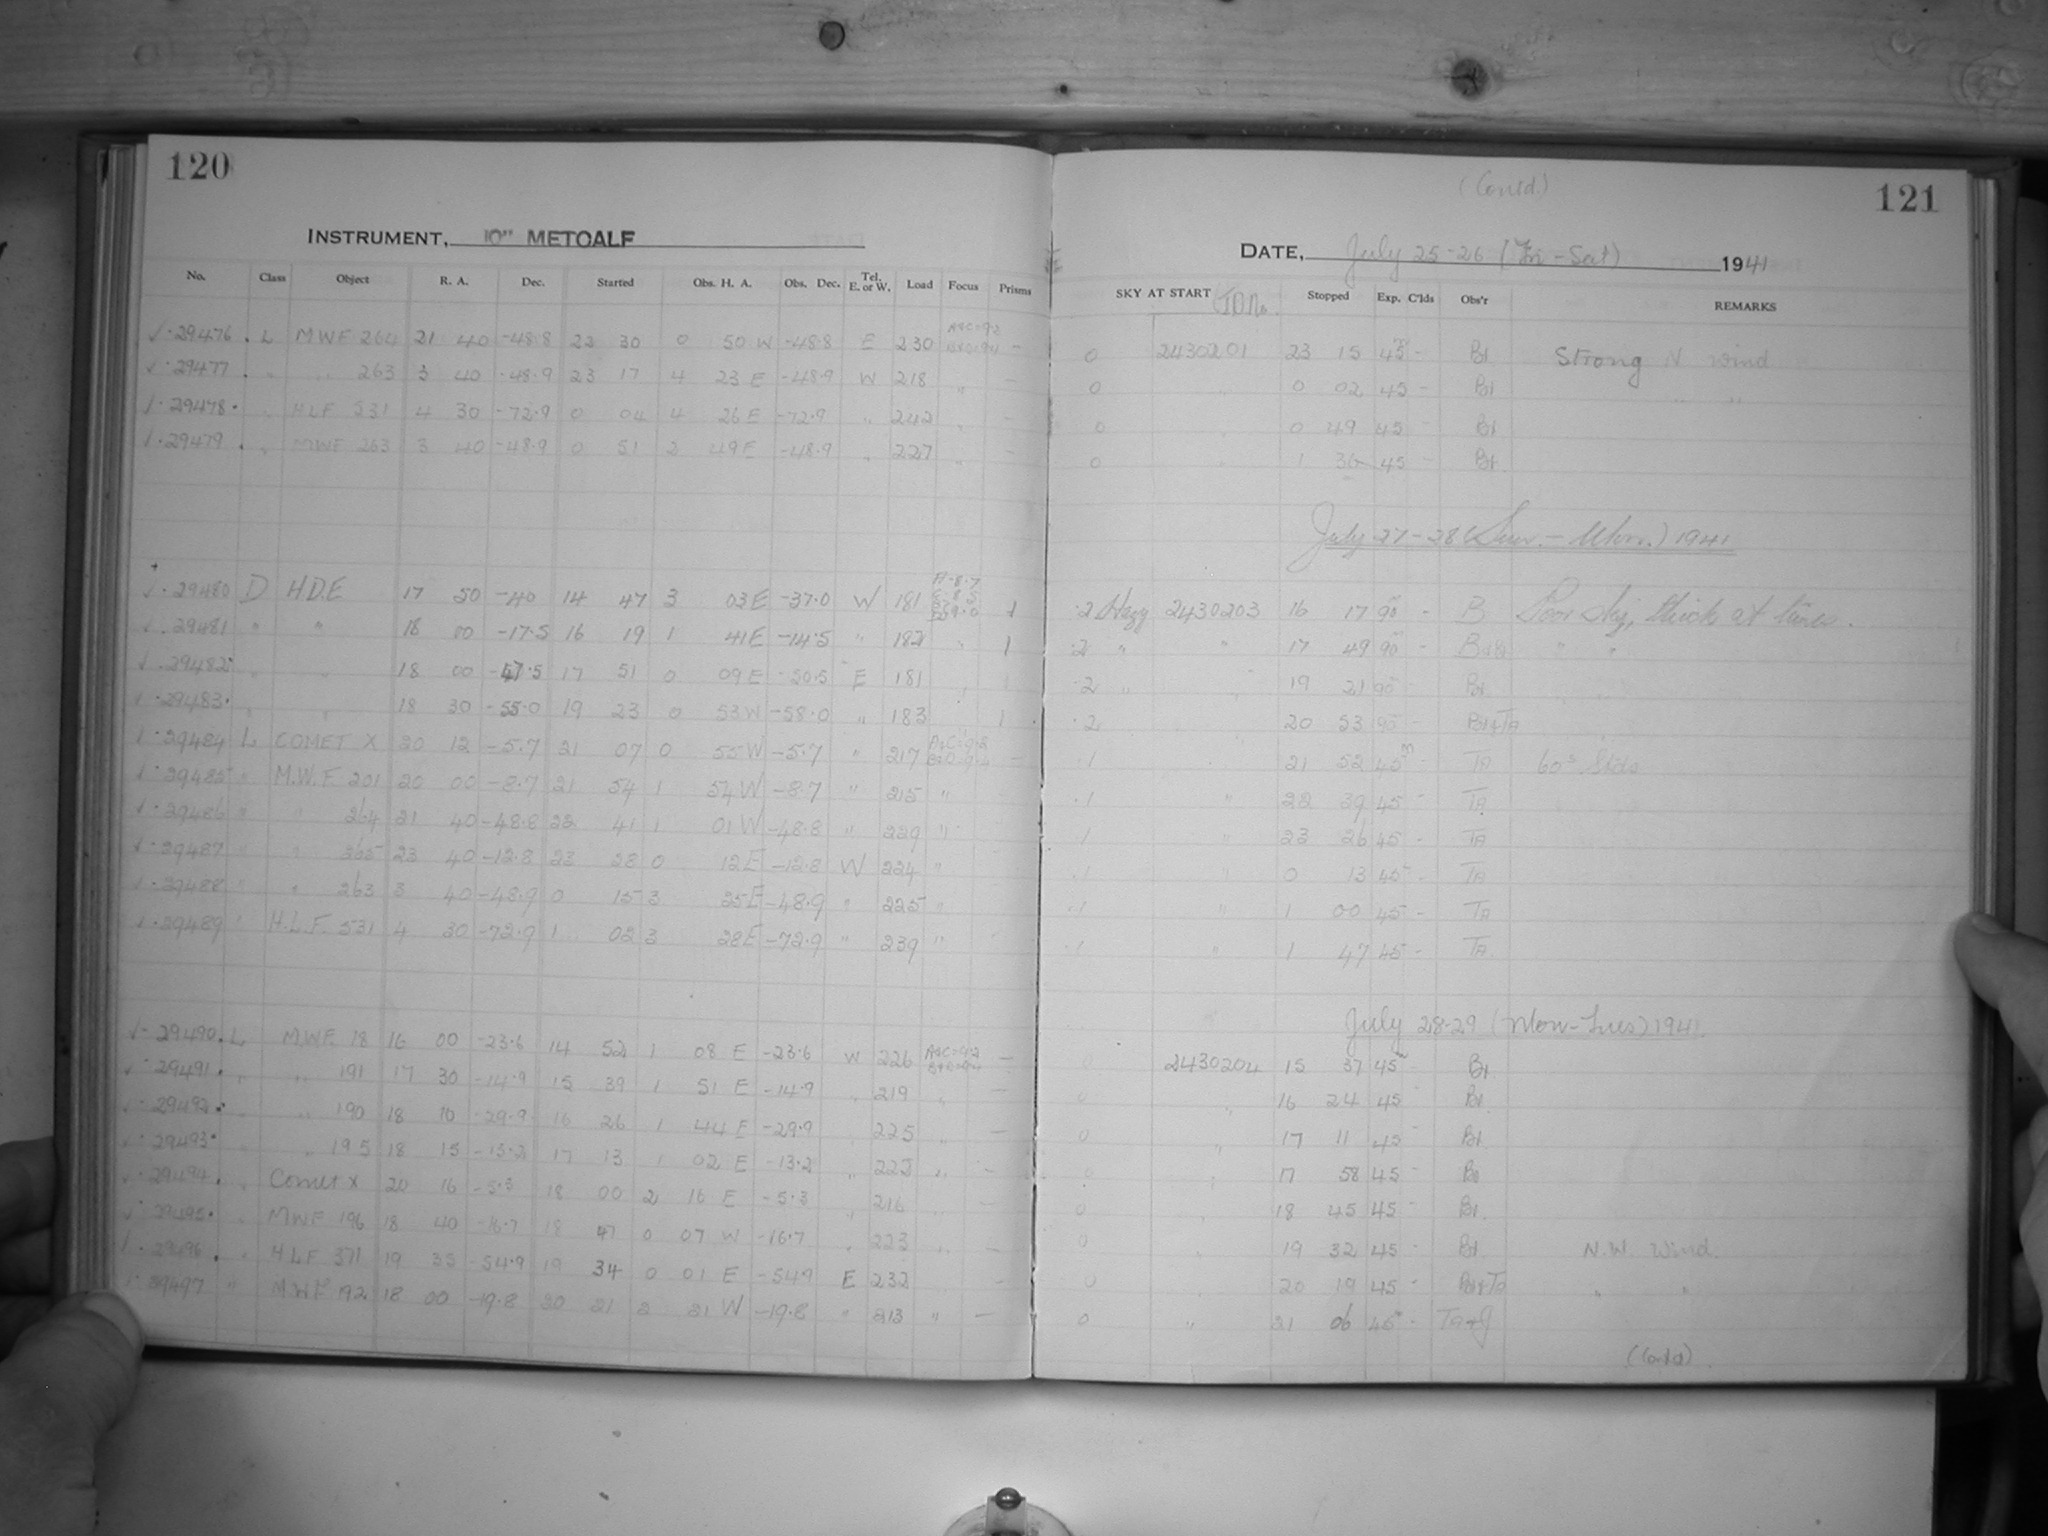 120
INSTRUMENT, 10" METCALF
No. Class Object R. A. Dec. Started Obs. H. A. Obs. Dec. Tel. E. or W. Load Focus Prisms
29476 L MWF 264 21 40 -48.8 23 30 0 50 W -48.8 E 230 A+C=9.2 –
29477 " " 263 3 40 -48.9 23 17 4 23 E -48.9 W 218 " –
29478 " HLF 531 4 30 -72.9 0 04 4 26 E -72.9 " 242 " –
29479 " MWF 263 3 40 -48.9 0 51 2 49 E -48.9 " 227 " –
29480 D H.D.E 17 50 -40 14 47 3 03 E -37.0 W 181 1
29481 " " 18 00 -17.5 16 19 1 41 E -14.5 " 182 " 1
29482 " " 18 00 17 51 0 09 E -50.5 E 181 "
29483 " " 18 30 -55.0 19 23 0 53 W -58.0 " 183 1
29484 L COMET X 20 12 -5.7 21 07 0 55 W -5.7 " 217 –
29485 " M.W.F. 201 20 00 -8.7 21 54 1 54 W -8.7 " 215 "
29486 " " 264 21 40 -48.8 22 41 1 01 W -48.8 " 229 "
29487 " " 265 23 40 -12.8 23 28 0 12 E -12.8 W 224 "
29488 " " 263 3 40 -48.9 0 15 3 25 E -48.9 " 225 "
29489 " H.L.F. 531 4 30 -72.9 1 02 3 28 E -72.9 " 239 "
29490 L MWF 18 16 00 -23.6 14 52 1 08 E -23.6 W 226 –
29491 " " 191 17 30 -14.9 15 39 1 51 E -14.9 " 219 " –
29492 " " 190 18 10 -29.9 16 26 1 44 E -29.9 " 225 " –
29493 " " 195 18 15 -13.2 17 13 1 02 E -13.2 " " –
29494 " Comet X 20 16 -5.3 18 00 2 16 E -5.3 " 216 –
29495 " MWF 196 18 40 -16.7 18 47 0 07 W -16.7 " 223 " –
29496 " HLF 371 19 35 -54.9 19 34 0 01 E -54.9 E 232 –
29497 " MWF 192 18 00 -19.8 20 21 2 21 W -19.8 " 213 " –
(Contd.)
121
DATE, July 25-26 (Fri-Sat) 1941
SKY AT START J.D. No. Stopped Exp. C'lds Obs'r REMARKS
0 2430201 23 15 45m – Bl Strong N wind
0 " 0 02 45 – Bl " "
0 " 0 49 45 – Bl
0 " 1 36 45 – Bl
July 27-28 (Sun.-Mon.) 1941
.2 Hazy 2430203 16 17 90 – B Poor sky, thick at times.
.2 " " 17 49 90 – " "
.2 " " 19 21 90 – Bl
.2 20 53 90 – Bl+TA
.1 21 52 45m – TA 60s
.1 " 22 39 45 – TA
.1 " 23 26 45 – TA
.1 " 0 13 45 – TA
.1 " 1 00 45 – TA
.1 " 1 47 45 – TA
July 28-29 (Mon-Tues) 1941
0 2430204 15 37 45 – Bl
0 " 16 24 45 – Bl
0 " 17 11 45 – Bl
0 " 17 58 45 – Bl
0 18 45 45 – Bl
0 " 19 32 45 – Bl N.W. Wind.
0 20 19 45 – Bl+TA " "
0 " 21 06 45 – TA+J
(Contd)